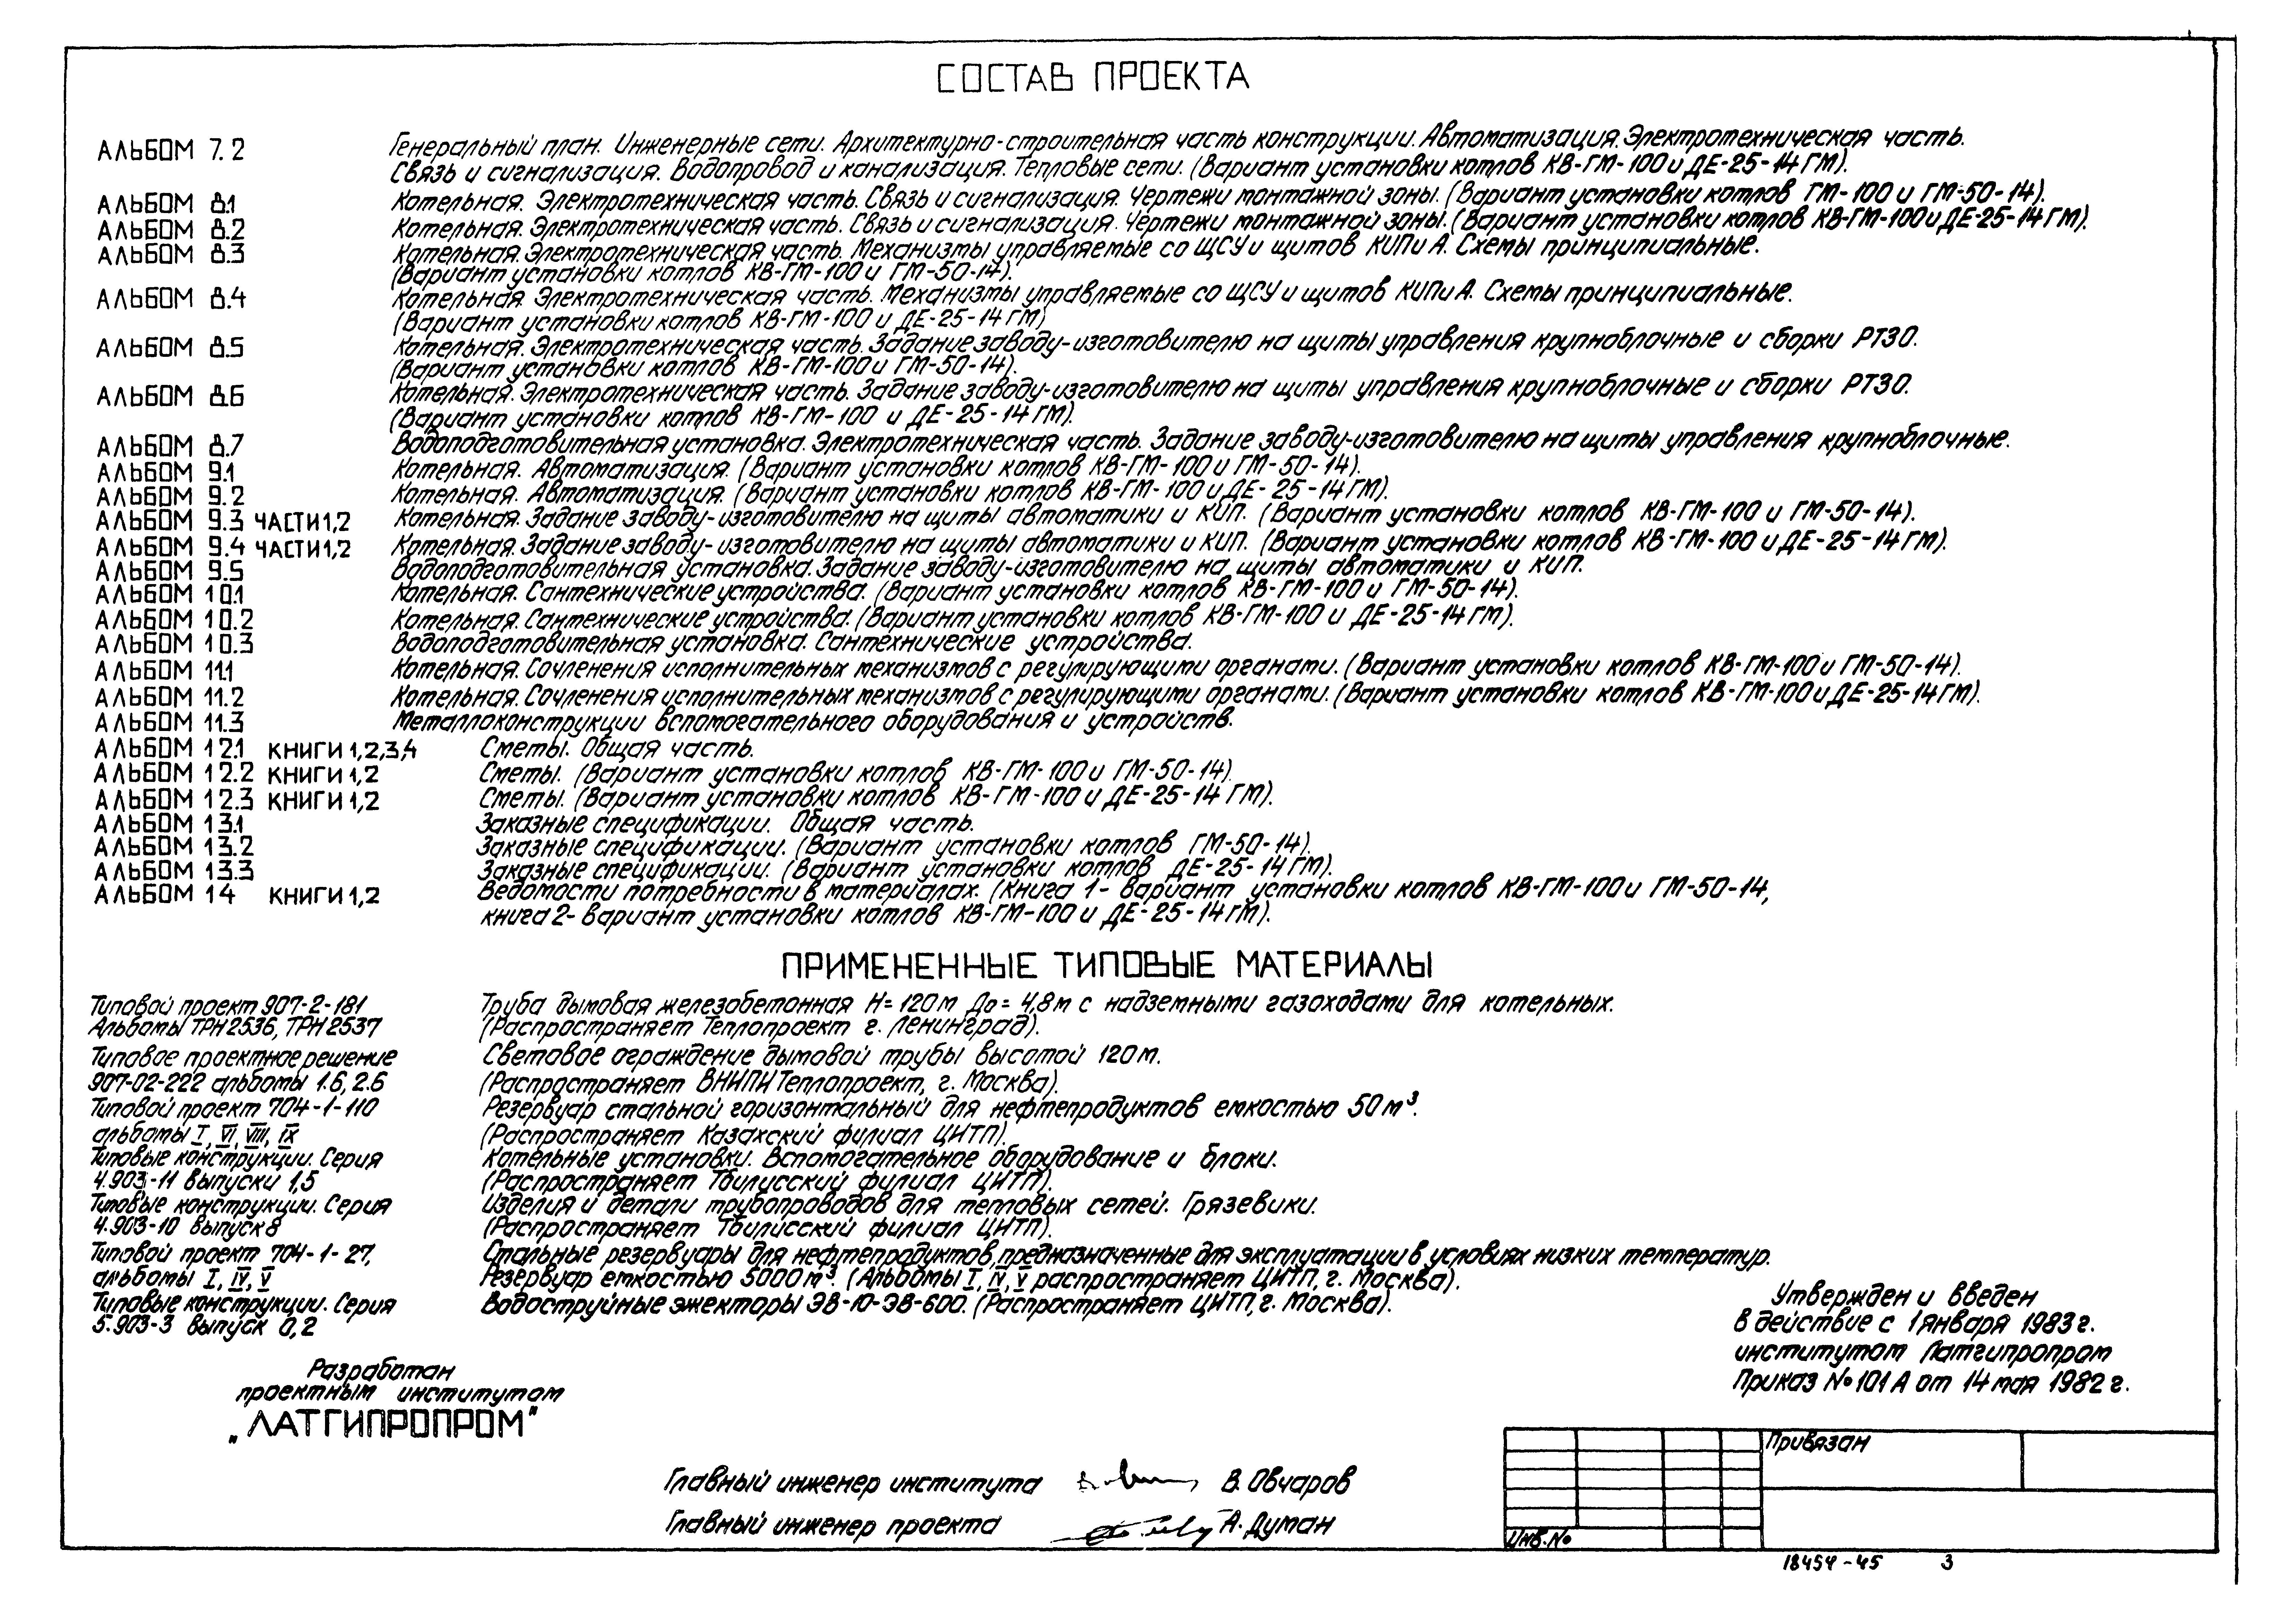 СОСТАВ ПРОЕКТА
АЛЬБОМ 7.2 Генеральный план. Инженерные сети. Архитектурно-строительная часть конструкции. Автоматизация. Электротехническая часть.
Связь и сигнализация. Водопровод и канализация. Тепловые сети. (Вариант установки котлов КВ-ГМ-100 и ДЕ-25-14 ГМ).
АЛЬБОМ 8.1 Котельная. Электротехническая часть. Связь и сигнализация. Чертежи монтажной зоны. (Вариант установки котлов ГМ-100 и ГМ-50-14).
АЛЬБОМ 8.2 Котельная. Электротехническая часть. Связь и сигнализация. Чертежи монтажной зоны. (Вариант установки котлов КВ-ГМ-100 и ДЕ-25-14 ГМ).
АЛЬБОМ 8.3 Котельная. Электротехническая часть. Механизмы управляемые со ЩСУ и щитов КИПиА. Схемы принципиальные.
(Вариант установки котлов КВ-ГМ-100 и ГМ-50-14).
АЛЬБОМ 8.4 Котельная. Электротехническая часть. Механизмы управляемые со ЩСУ и щитов КИПиА. Схемы принципиальные.
(Вариант установки котлов КВ-ГМ-100 и ДЕ-25-14 ГМ)
АЛЬБОМ 8.5 Котельная. Электротехническая часть. Задание заводу-изготовителю на щиты управления крупноблочные и сборки РТЗО.
(Вариант установки котлов КВ-ГМ-100 и ГМ-50-14).
АЛЬБОМ 8.6 Котельная. Электротехническая часть. Задание заводу-изготовителю на щиты управления крупноблочные и сборки РТЗО.
(Вариант установки котлов КВ-ГМ-100 и ДЕ-25-14 ГМ).
АЛЬБОМ 8.7 Водоподготовительная установка. Электротехническая часть. Задание заводу-изготовителю на щиты управления крупноблочные.
АЛЬБОМ 9.1 Котельная. Автоматизация. (Вариант установки котлов КВ-ГМ-100 и ГМ-50-14).
АЛЬБОМ 9.2 Котельная. Автоматизация. (Вариант установки котлов КВ-ГМ-100 и ДЕ-25-14 ГМ).
АЛЬБОМ 9.3 ЧАСТИ 1,2 Котельная. Задание заводу-изготовителю на щиты автоматики и КИП. (Вариант установки котлов КВ-ГМ-100 и ГМ-50-14).
АЛЬБОМ 9.4 ЧАСТИ 1,2 Котельная. Задание заводу-изготовителю на щиты автоматики и КИП. (Вариант установки котлов КВ-ГМ-100 и ДЕ-25-14 ГМ).
АЛЬБОМ 9.5 Водоподготовительная установка. Задание заводу-изготовителю на щиты автоматики и КИП.
АЛЬБОМ 10.1 Котельная. Сантехнические устройства. (Вариант установки котлов КВ-ГМ-100 и ГМ-50-14).
АЛЬБОМ 10.2 Котельная. Сантехнические устройства. (Вариант установки котлов КВ-ГМ-100 и ДЕ-25-14 ГМ).
АЛЬБОМ 10.3 Водоподготовительная установка. Сантехнические устройства.
АЛЬБОМ 11.1 Котельная. Сочленения исполнительных механизмов с регулирующими органами. (Вариант установки котлов КВ-ГМ-100 и ГМ-50-14).
АЛЬБОМ 11.2 Котельная. Сочленения исполнительных механизмов с регулирующими органами. (Вариант установки котлов КВ-ГМ-100 и ДЕ-25-14 ГМ).
АЛЬБОМ 11.3 Металлоконструкции вспомогательного оборудования и устройств.
АЛЬБОМ 12.1 КНИГИ 1,2,3,4 Сметы. Общая часть.
АЛЬБОМ 12.2 КНИГИ 1,2 Сметы. (Вариант установки котлов КВ-ГМ-100 и ГМ-50-14).
АЛЬБОМ 12.3 КНИГИ 1,2 Сметы. (Вариант установки котлов КВ-ГМ-100 и ДЕ-25-14 ГМ).
АЛЬБОМ 13.1 Заказные спецификации. Общая часть.
АЛЬБОМ 13.2 Заказные спецификации. (Вариант установки котлов ГМ-50-14).
АЛЬБОМ 13.3 Заказные спецификации. (Вариант установки котлов ДЕ-25-14 ГМ).
АЛЬБОМ 14 КНИГИ 1,2 Ведомости потребности в материалах. (Книга 1- вариант установки котлов КВ-ГМ-100 и ГМ-50-14,
книга 2- вариант установки котлов КВ-ГМ-100 и ДЕ-25-14 ГМ).
ПРИМЕНЕННЫЕ ТИПОВЫЕ МАТЕРИАЛЫ
Типовой проект 907-2-181 Труба дымовая железобетонная Н=120м До=4,8м с надземными газоходами для котельных.
Альбомы ТРН 2536, ТРН 2537 (Распространяет Теплопроект г. Ленинград).
Типовое проектное решение Световое ограждение дымовой трубы высотой 120м.
907-02-222 альбомы 1.6, 2.6 (Распространяет ВНИПИ Теплопроект, г. Москва).
Типовой проект 704-1-110 Резервуар стальной горизонтальный для нефтепродуктов емкостью 50м³.
альбомы I, VI, VIII, IX (Распространяет Казахский филиал ЦИТП).
Типовые конструкции. Серия Котельные установки. Вспомогательное оборудование и блоки.
4.903-11 выпуски 1,5 (Распространяет Тбилисский филиал ЦИТП).
Типовые конструкции. Серия Изделия и детали трубопроводов для тепловых сетей. Грязевики.
4.903-10 выпуск 8 (Распространяет Тбилисский филиал ЦИТП).
Типовой проект 704-1-27, Стальные резервуары для нефтепродуктов, предназначенные для эксплуатации в условиях низких температур.
альбомы I, IV, V Резервуар емкостью 5000м³. (Альбомы I, IV, V распространяет ЦИТП, г. Москва).
Типовые конструкции. Серия Водоструйные эжекторы ЭВ-10-ЭВ-600. (Распространяет ЦИТП, г. Москва).
5.903-3 выпуск 0,2
Утвержден и введен
в действие с 1 января 1983 г.
институтом Латгипропром
Приказ № 101 А от 14 мая 1982 г.
Разработан
проектным институтом
„ЛАТГИПРОПРОМ"
Главный инженер института В. Овчаров
Главный инженер проекта А. Думан
Привязан
Инв. №
18454-45 3